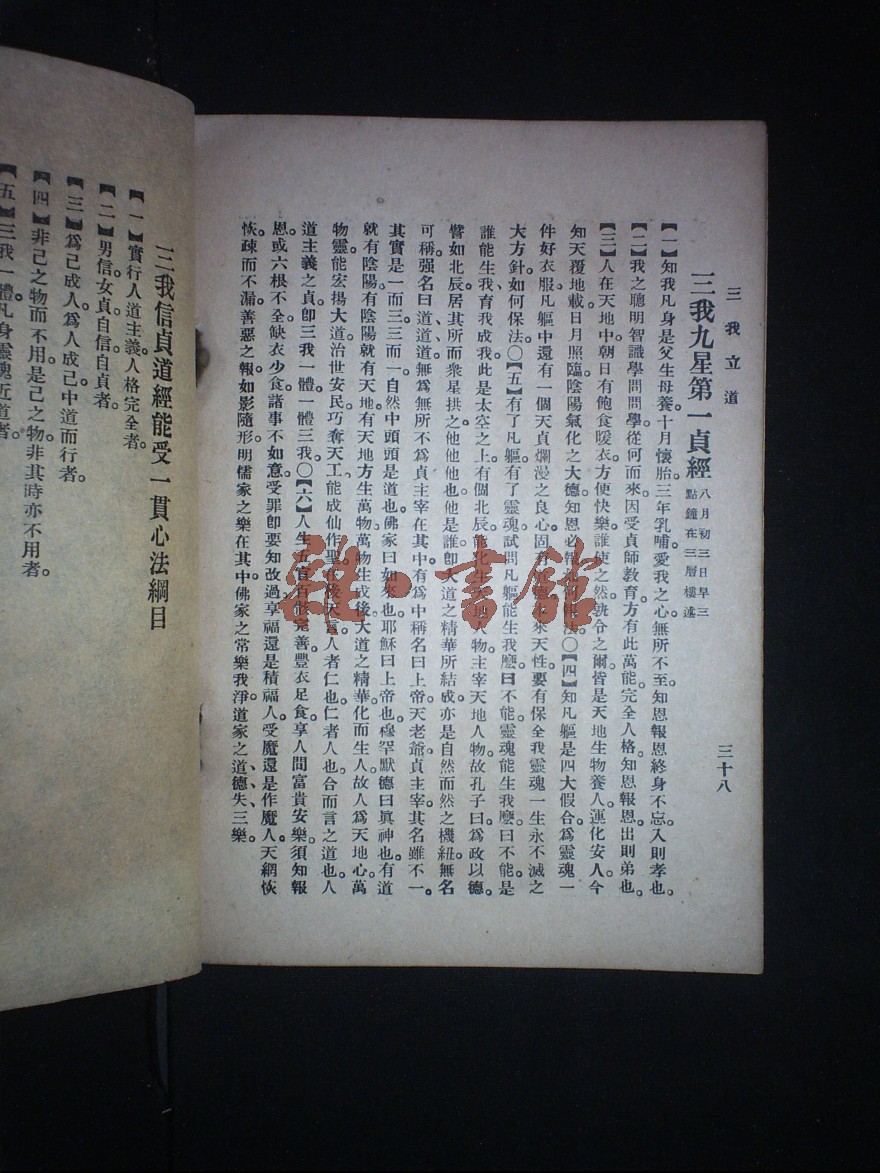 三我立道
三十八
三我九星第一貞經
八月初三日早三
點鐘在三層樓遙
【一】知我凡身是父生母養。十月懷胎三年乳哺愛我之心無所不至知恩報恩終身不忘入則孝也。
【二】我之聰明智識學問問學從何而來因受貞師教育方有此萬能完全人格知恩報恩出則弟也。
【三】人在天地中朝日有飽食暖衣方便快樂誰使之然孰令之爾皆是天地生物養人運化安人今
知天覆地載日月照臨陰陽氣化之大德知恩必報
法〇【四】知凡軀是四大假合爲靈魂一
件好衣服凡軀中還有一個天貞爛漫之良心固有
來天性要有保全我靈魂一生永不滅之
大方針如何保法〇【五】有了凡軀有了靈魂試問凡軀能生我麽曰不能靈魂能生我麽曰不能是
誰能生我育我成我此是太空之上有個北辰能化生天地人物主宰天地人物故孔子曰爲政以德。
譬如北辰居其所而衆星拱之他他他也他是誰卽大道之精華所結成亦是自然而然之機紐無名
可稱强名曰道道道無爲無所不爲貞主宰在其中有爲中稱名曰上帝天老爺貞主宰其名雖不一。
其實是一而三三而一自然中頭頭是道也佛家曰如來也耶穌曰上帝也穆罕默德曰眞神也有道
就有陰陽有陰陽就有天地有天地方生萬物萬物生成後大道之精華化而生人故人爲天地心萬
物靈能宏揚大道治世安民巧奪天工能成仙作聖在後天言人者仁也仁者人也合而言之道也人
道主義之貞卽三我一體一體三我〇【六】人生五官百骸完善豐衣足食享人間富貴安樂須知報
恩或六根不全缺衣少食諸事不如意受罪卽要知改過享福還是積福人受魔還是作魔人天網恢
恢疎而不漏善惡之報如影隨形明儒家之樂在其中佛家之常樂我淨道家之道德失三樂。
三我信貞道經能受一貫心法綱目
【一】實行人道主義人格完全者。
【二】男信女貞自信自貞者。
【三】爲己成人爲人成己中道而行者。
【四】非己之物而不用是己之物非其時亦不用者。
【五】三我一體凡身靈魂近道者。
雜·書館